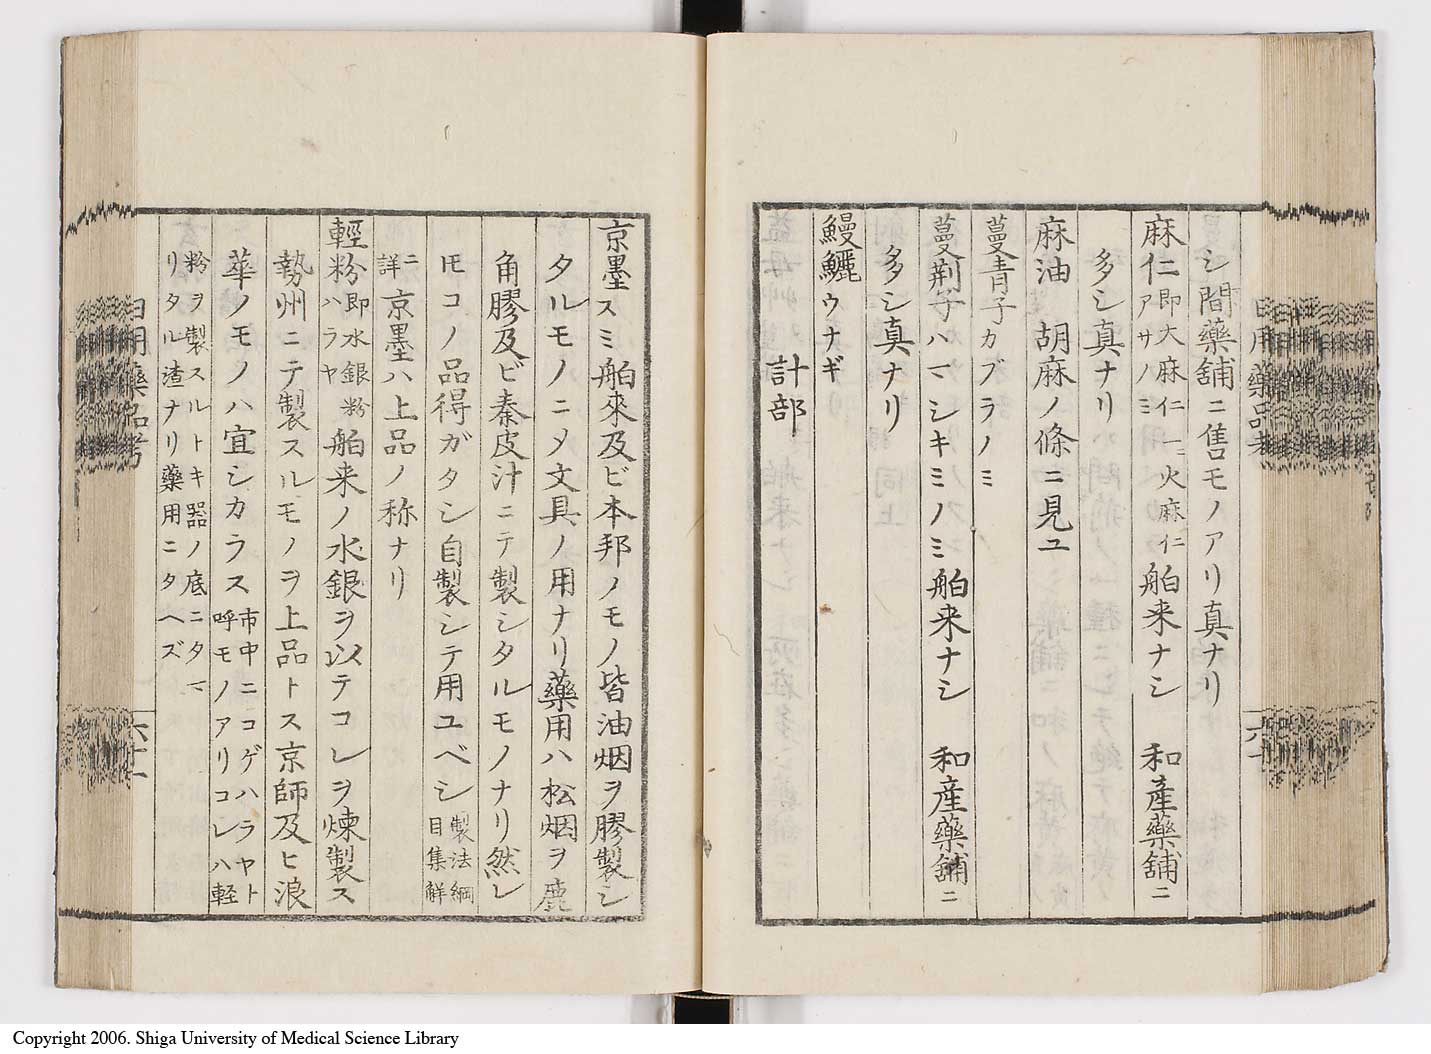 シ間藥舗ニ售モノアリ真ナリ
麻仁 即大麻仁一ニ火麻仁 アサノミ 舶来ナシ 和産藥舗ニ
多シ真ナリ
麻油 胡麻ノ條ニ見ユ
蔓青子 カブラノミ
蔓荊子 ハマシキミノミ 舶来ナシ 和産藥舗ニ
多シ真ナリ
鰻鱺 ウナギ
計部
京墨 スミ 舶來及ビ本邦ノモノ皆油烟ヲ膠製シ
タルモノニ〆文具ノ用ナリ藥用ハ松烟ヲ鹿
角膠及ビ秦皮汁ニテ製シタルモノナリ然レ
𪜈コノ品得ガタシ自製シテ用ユベシ 製法綱目集解
ニ詳 京墨ハ上品ノ称ナリ
輕粉 即水銀粉 ハラヤ 舶来ノ水銀ヲ以テコレヲ煉製ス
勢州ニテ製スルモノヲ上品トス京師及ヒ浪
華ノモノハ宜シカラス 市中ニコゲハラヤト
呼モノアリコレハ軽
粉ヲ製スルトキ器ノ底ニタマ
リタル渣ナリ藥用ニタヘズ
日用藥品考
六十
日用藥品考
六十一
Copyright 2006. Shiga University of Medical Science Library